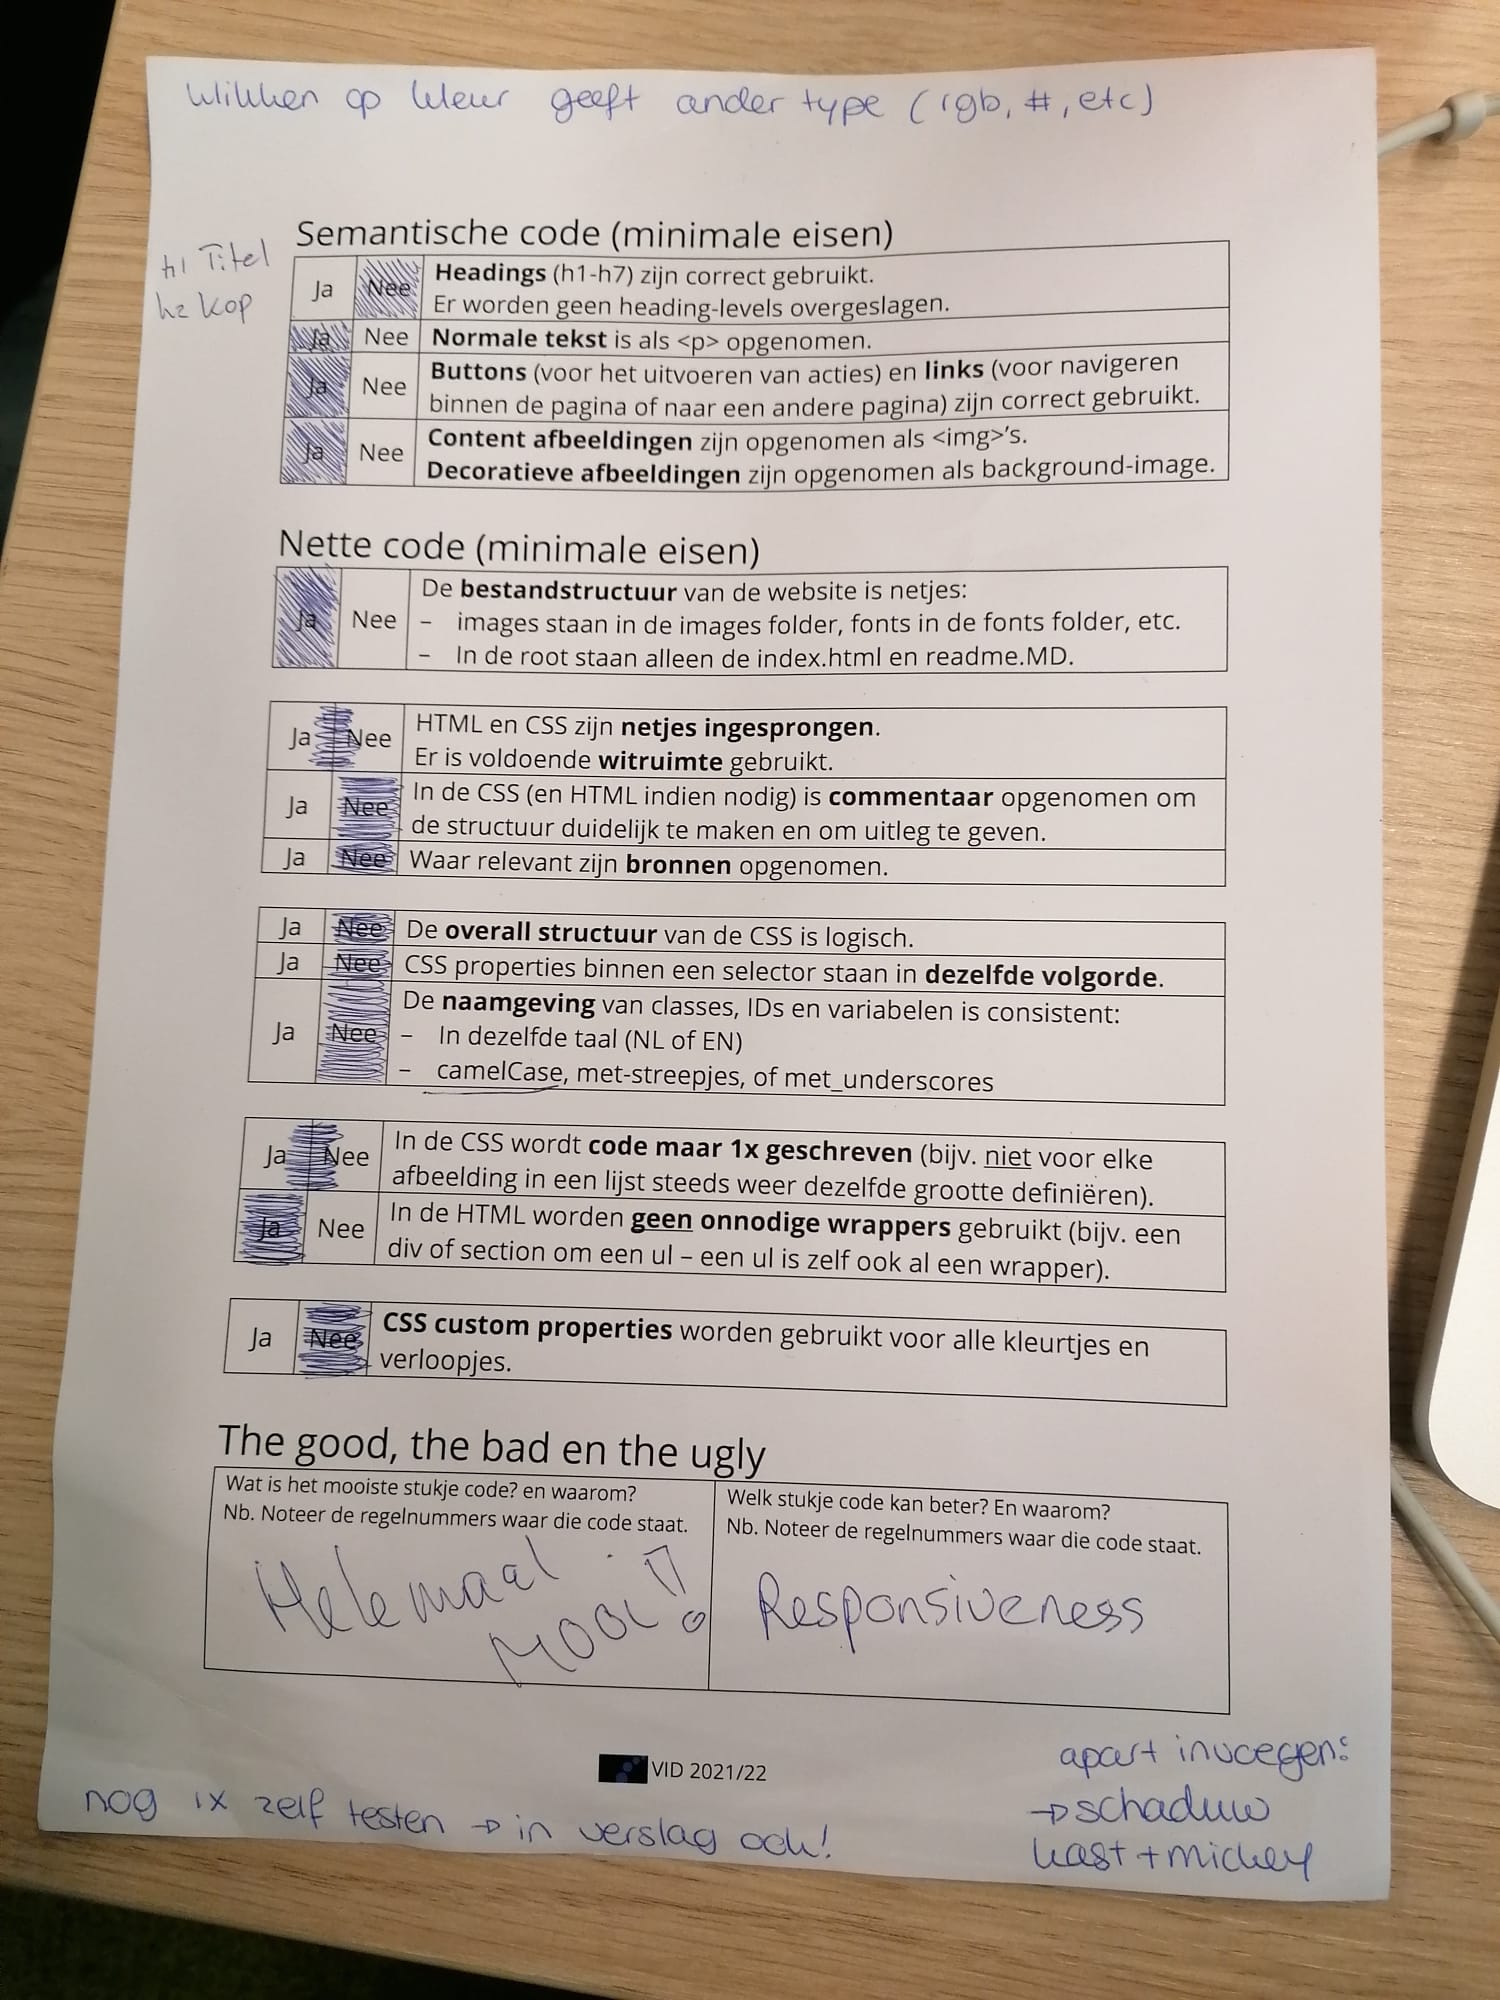 klikken op kleur geeft ander type (rgb, #, etc)
Semantische code (minimale eisen)
h1 Titel
h2 kop
Ja Nee Headings (h1-h7) zijn correct gebruikt.
Er worden geen heading-levels overgeslagen.
Ja Nee Normale tekst is als <p> opgenomen.
Ja Nee Buttons (voor het uitvoeren van acties) en links (voor navigeren
binnen de pagina of naar een andere pagina) zijn correct gebruikt.
Ja Nee Content afbeeldingen zijn opgenomen als <img>'s.
Decoratieve afbeeldingen zijn opgenomen als background-image.
Nette code (minimale eisen)
Ja Nee De bestandstructuur van de website is netjes:
– images staan in de images folder, fonts in de fonts folder, etc.
– In de root staan alleen de index.html en readme.MD.
Ja Nee HTML en CSS zijn netjes ingesprongen.
Er is voldoende witruimte gebruikt.
Ja Nee In de CSS (en HTML indien nodig) is commentaar opgenomen om
de structuur duidelijk te maken en om uitleg te geven.
Ja Nee Waar relevant zijn bronnen opgenomen.
Ja Nee De overall structuur van de CSS is logisch.
Ja Nee CSS properties binnen een selector staan in dezelfde volgorde.
Ja Nee De naamgeving van classes, IDs en variabelen is consistent:
– In dezelfde taal (NL of EN)
– camelCase, met-streepjes, of met_underscores
Ja Nee In de CSS wordt code maar 1x geschreven (bijv. niet voor elke
afbeelding in een lijst steeds weer dezelfde grootte definiëren).
Ja Nee In de HTML worden geen onnodige wrappers gebruikt (bijv. een
div of section om een ul – een ul is zelf ook al een wrapper).
Ja Nee CSS custom properties worden gebruikt voor alle kleurtjes en
verloopjes.
The good, the bad en the ugly
Wat is het mooiste stukje code? en waarom?
Nb. Noteer de regelnummers waar die code staat.
Helemaal
MOOi!!
Welk stukje code kan beter? En waarom?
Nb. Noteer de regelnummers waar die code staat.
Responsiveness
VID 2021/22
nog 1x zelf testen → in verslag ook!
apart invoegen:
→ schaduw
kast + mickey